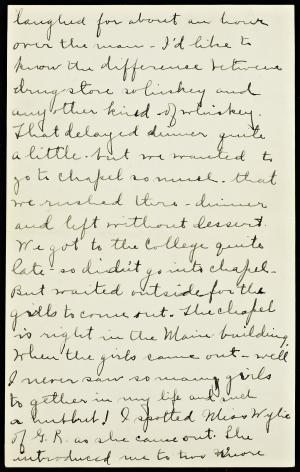 laughed for about an hour
over the man - I'd like to
know the difference between
drug store whiskey and
any other kind of whiskey.
That delayed dinner quite
a little - but we wanted to
go to chapel so much - that
we rushed thro - dinner
and left without dessert.
We got to the College quite
late - so didn't go into chapel -
But waited outside for the
girls to come out. The chapel
is right in the Main building.
When the girls came out - well
I never saw so many girls
to gether in my life and not
a nutbut! I spotted Miss Wylie
of G. R. as she came out. She
introduced me to two more